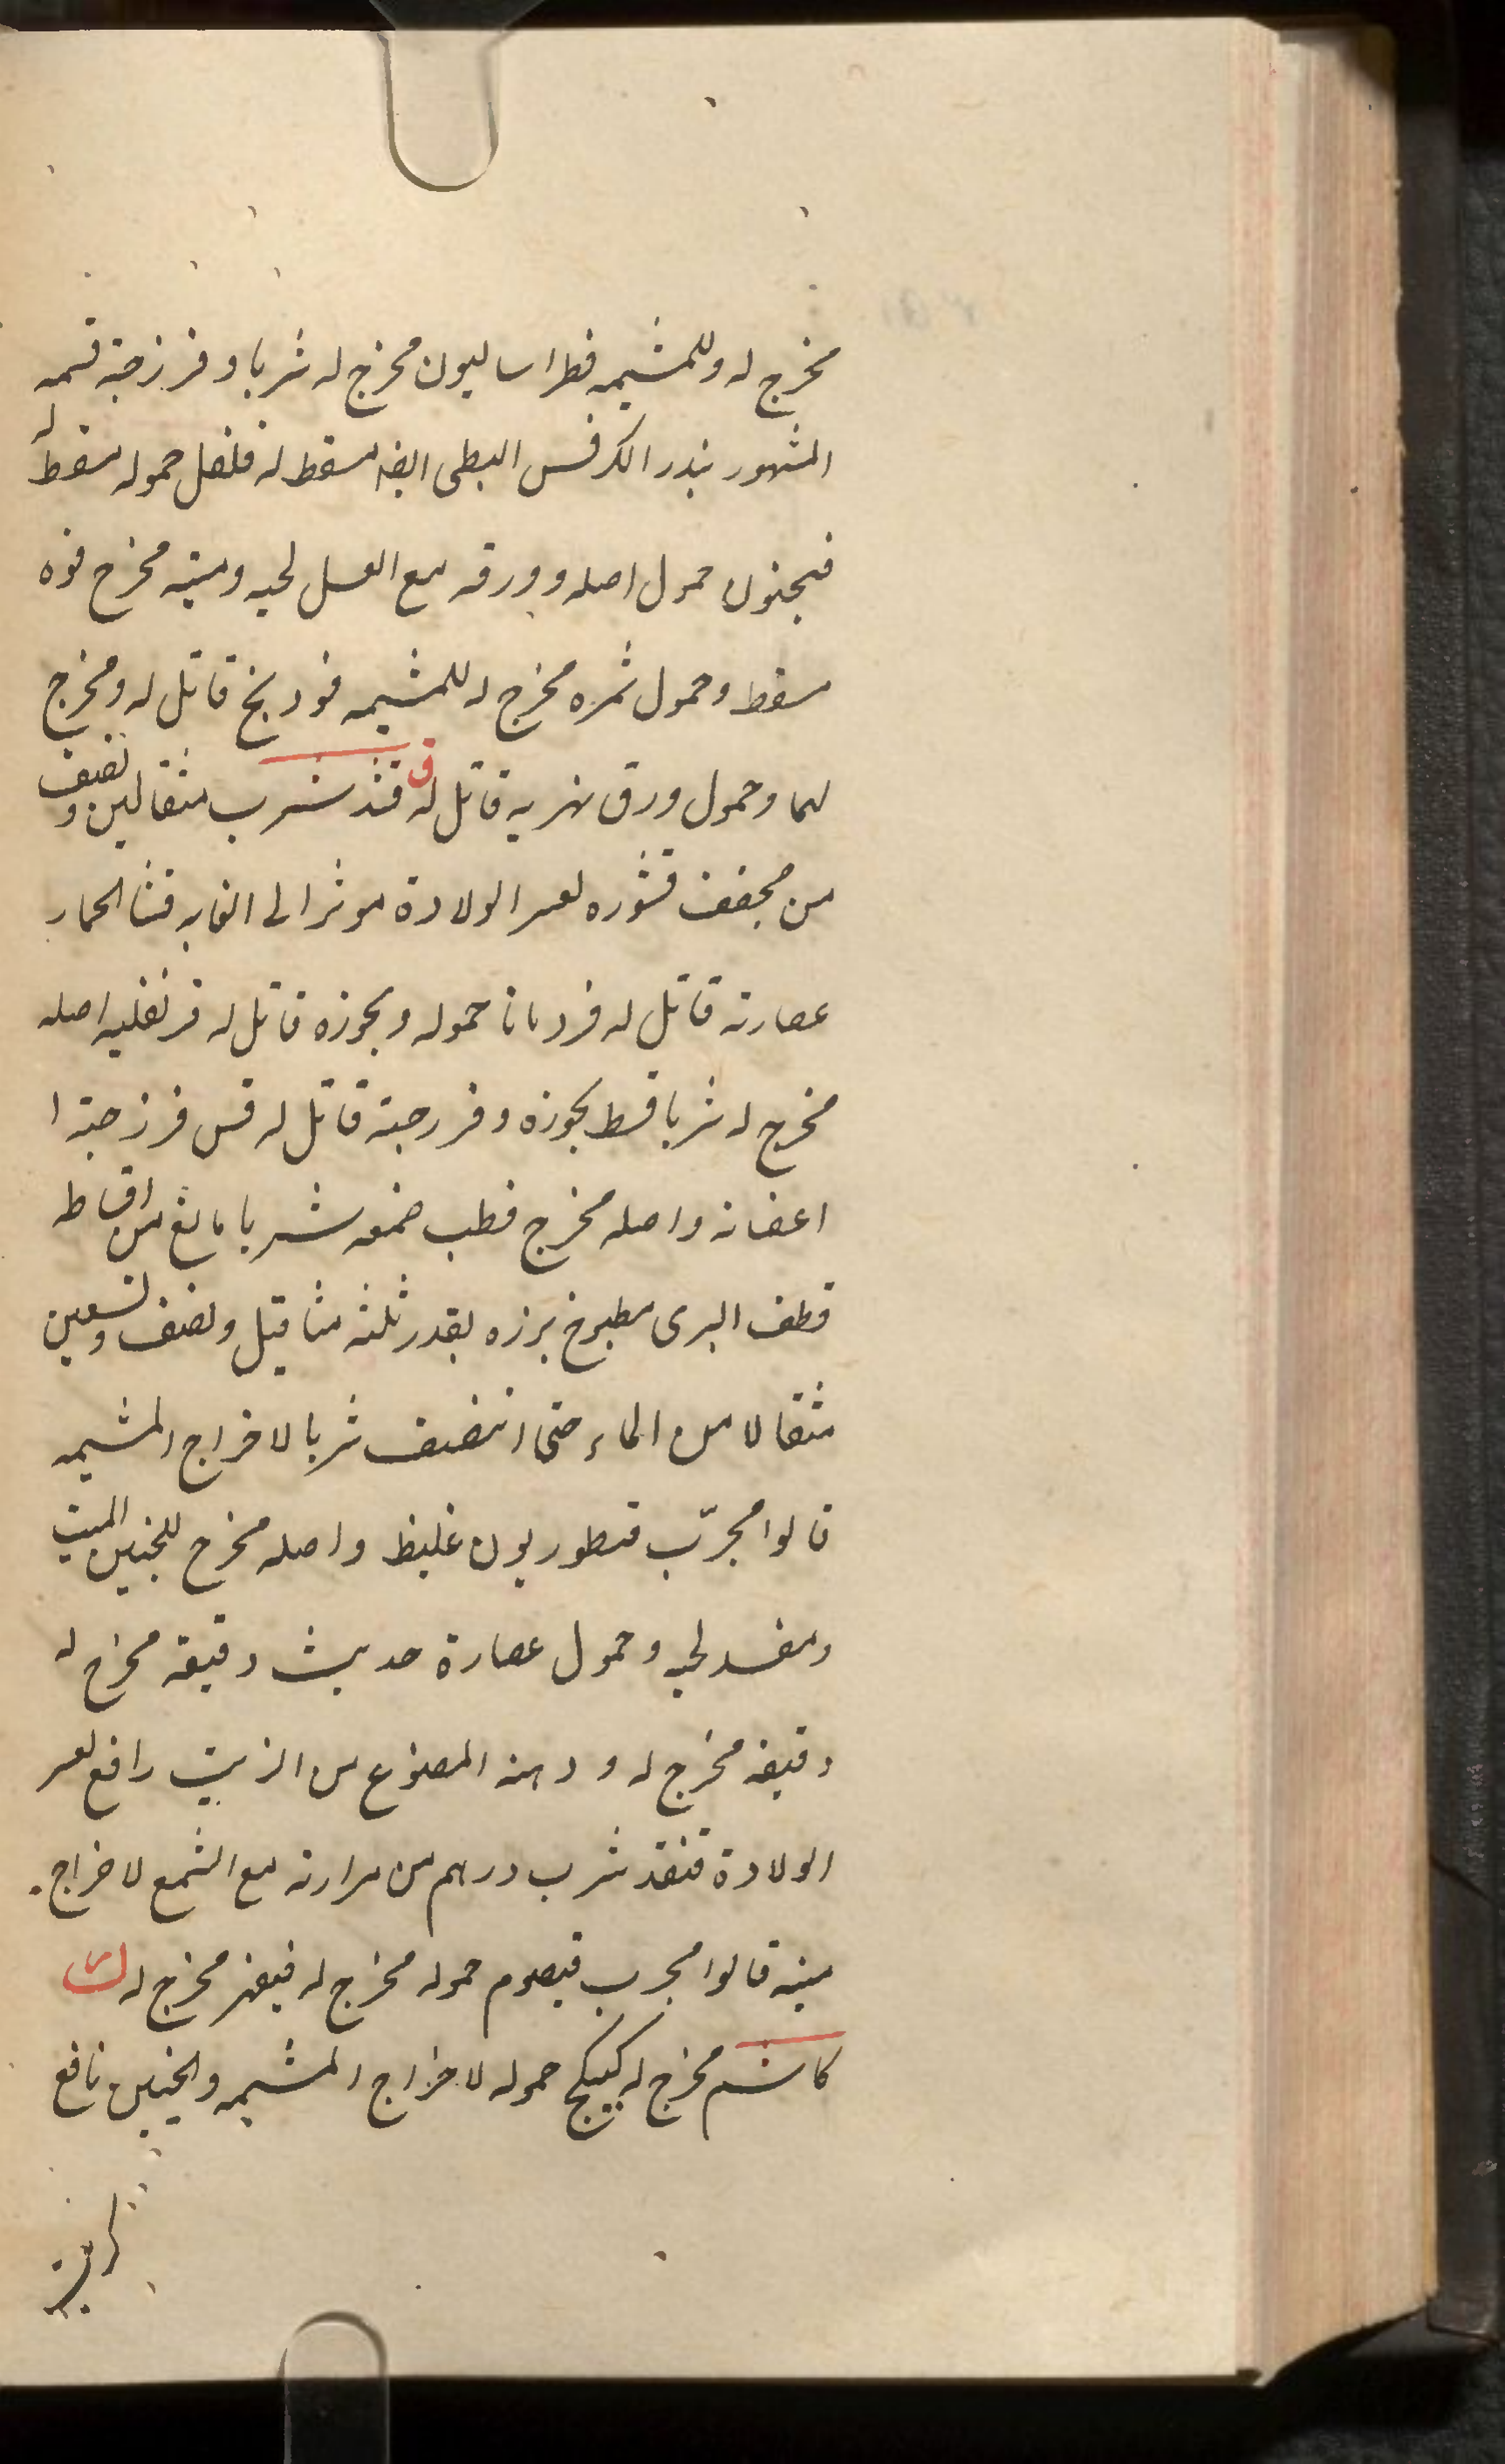 مخرج له وللمشیمه فطراسالیون مخرج له شربا و فرزجة قسمه
المشهور بذر الکرفس البطی ایضا مسقط له فلفل حموله مسقط له
فنجنول حمول اصله و ورقه مع العسل لحیه و میته مخرج فوه
مسقط و حمول ثمره مخرج له للمشیمه فودنج قاتل له و مخرج
لهما و حمول ورق نهریه قاتل له ق قند شرب مثقالین و نصف
من مجفف قشوره لعسر الولادة موثر الی الغایه قثا الحمار
عصارته قاتل له قردمانا حموله و بخوره قاتل له قرنفلیه اصله
مخرج له شربا قسط بخوره و فرزجته قاتل له قس فرزجته ا
اغصانه و اصله مخرج قطب ضمغه شربا مانع من اقساط
قطف البری مطبوخ بزره بقدر ثلثه مثاقیل و نصف و تسعین
مثقالا من الماء حتی انتصف شربا لاخراج المشیمه
قالوا مجرّب قنطوریون غلیظ و اصله مخرج للجنین المیت
و مفسد لحیه و حمول عصارة حدیث دقیقه مخرج له
دقیقه مخرج له و دهنه المصنوع من الزیت رافع لعسر
الولادة قنفذ شرب درهم من مرارته مع الشمع لاخراج
میته قالوا مجرب قیصوم حموله مخرج له قیقهر مخرج له ک
کاشم مخرج له کبیکج حموله لاخراج المشیمه و الجنین نافع